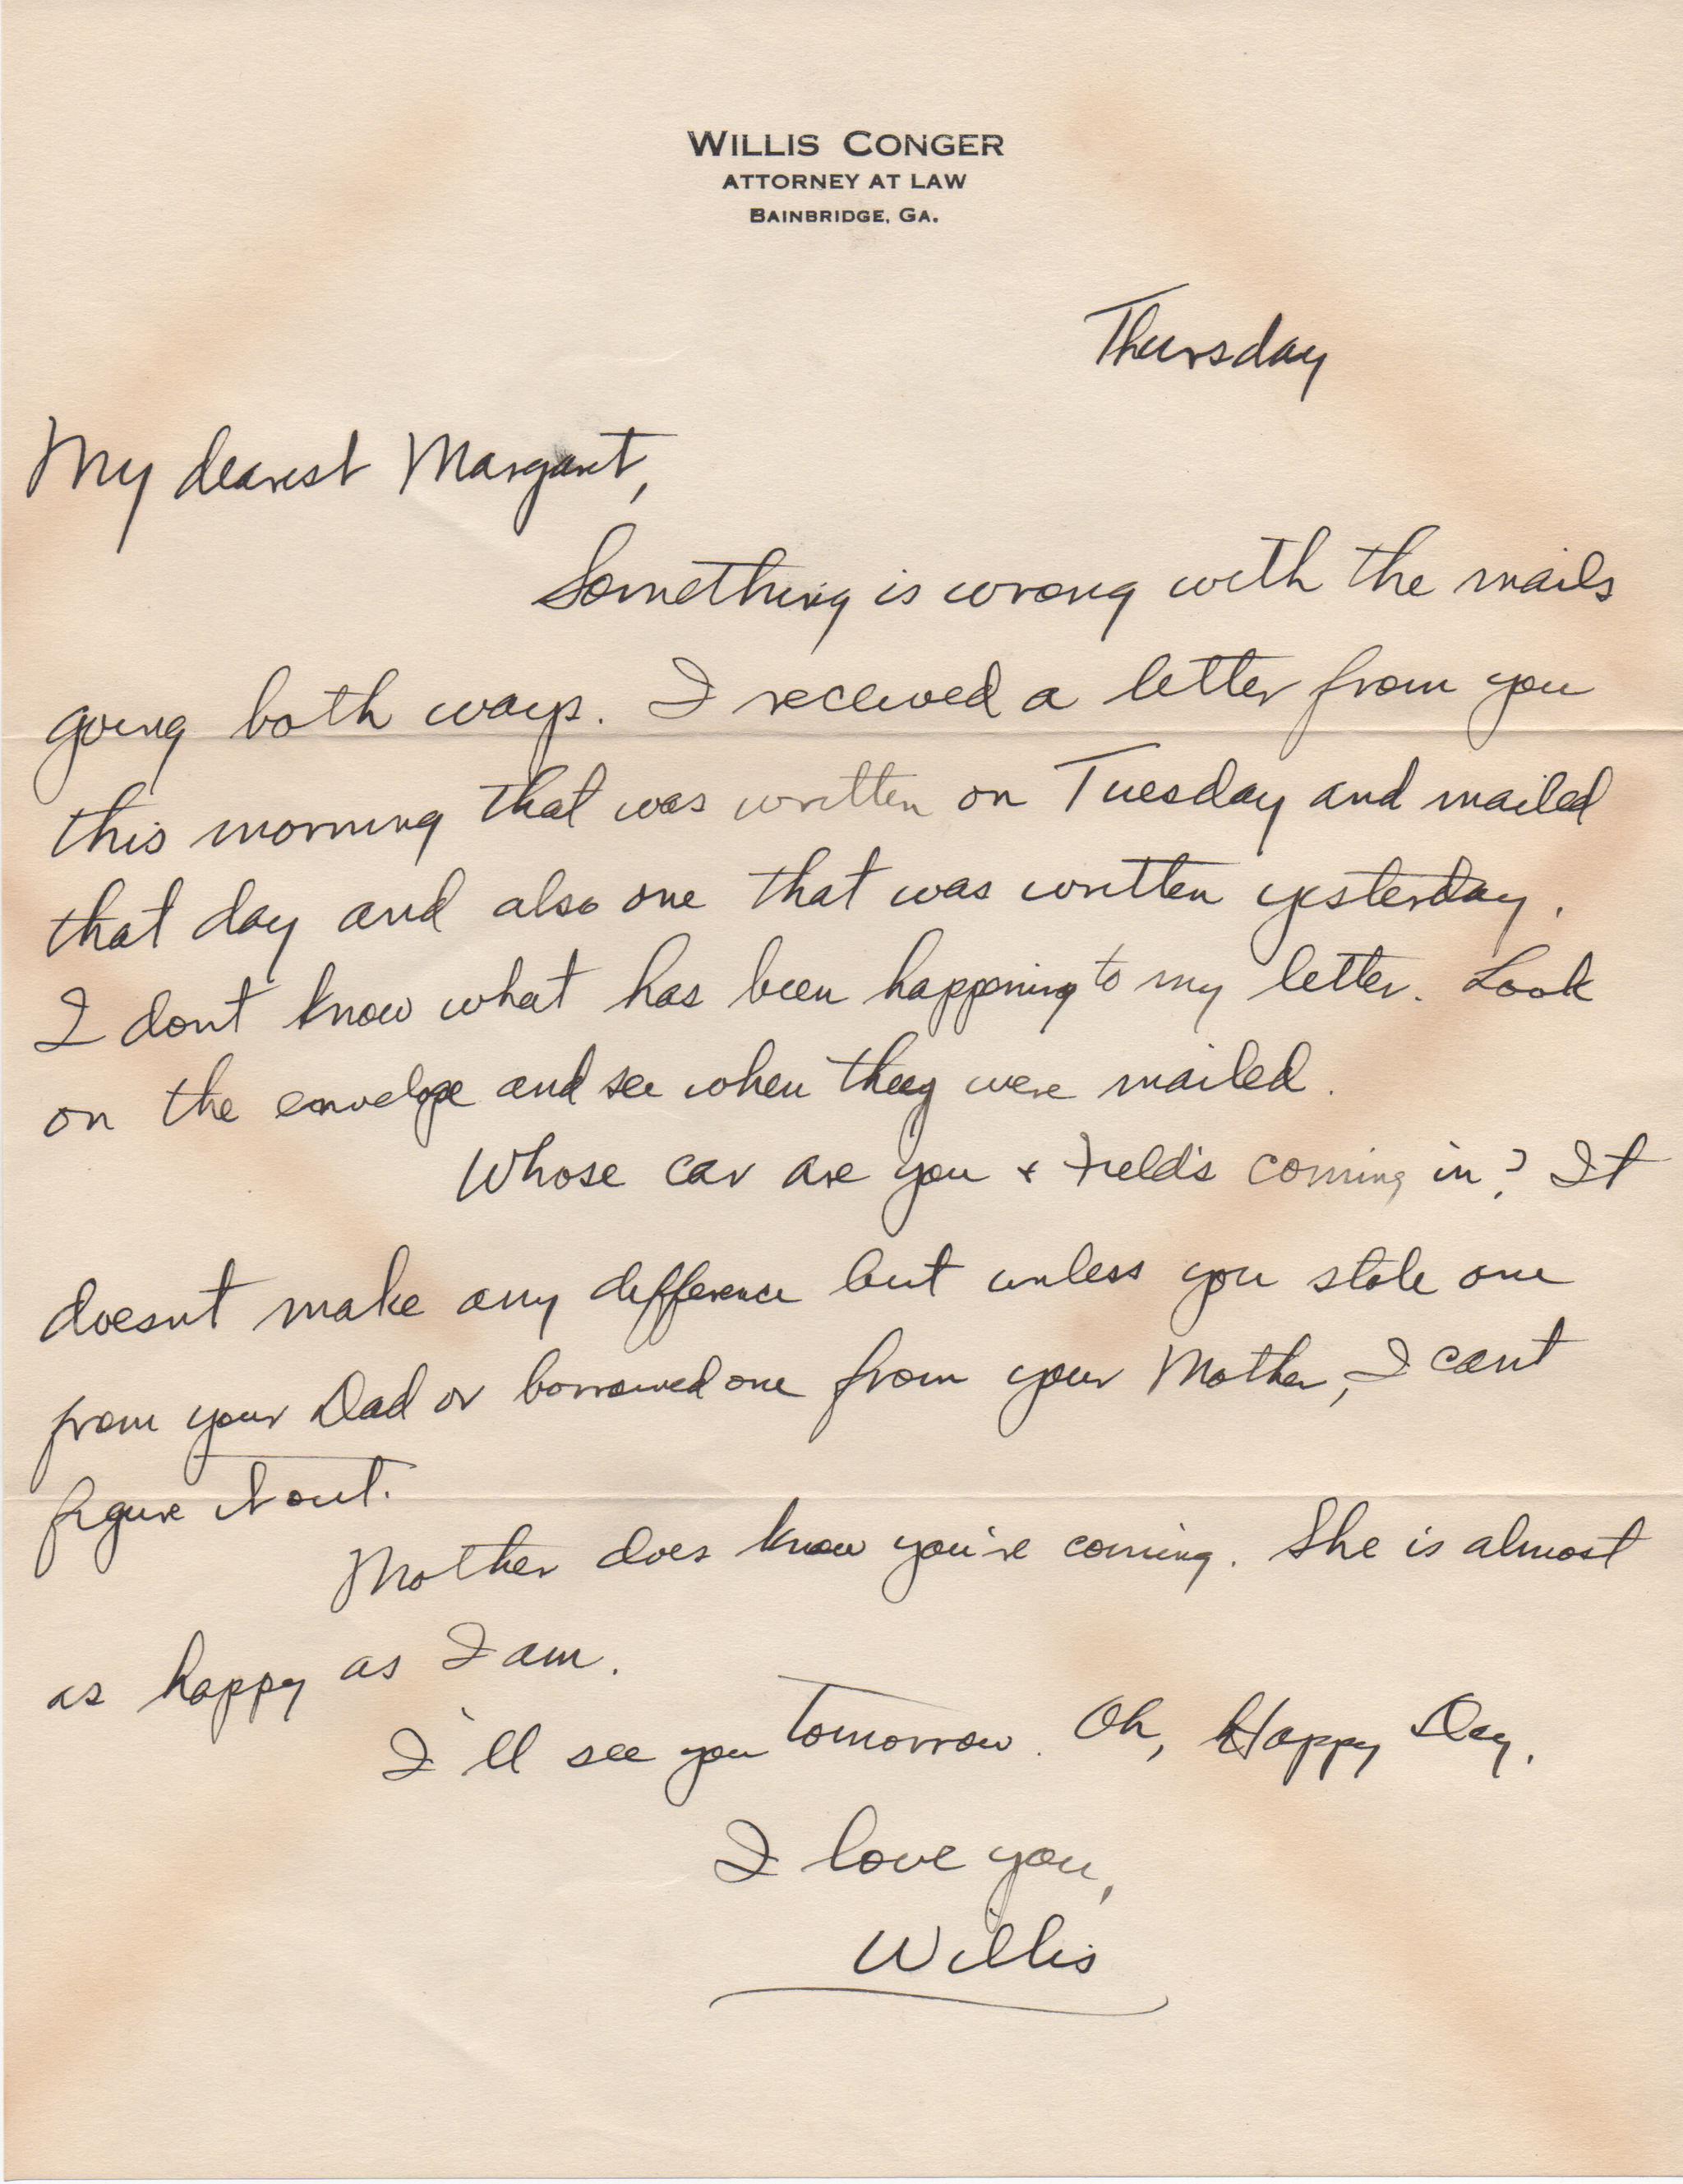 WILLIS CONGER
ATTORNEY AT LAW
BAINBRIDGE, GA.
Thursday
My dearest Margaret,
Something is wrong with the mails
going both ways. I received a letter from you
this morning that was written on Tuesday and mailed
that day and also one that was written yesterday.
I dont know what has been happening to my letter. Look
on the envelope and see when they were mailed.
Whose car are you + Field's coming in? It
doesnt make any difference but unless you stole one
from your Dad or borrowed one from your Mother, I cant
figure it out.
Mother does know you're coming. She is almost
as happy as I am.
I'll see you tomorrow. Oh, Happy Day.
I love you,
Willis